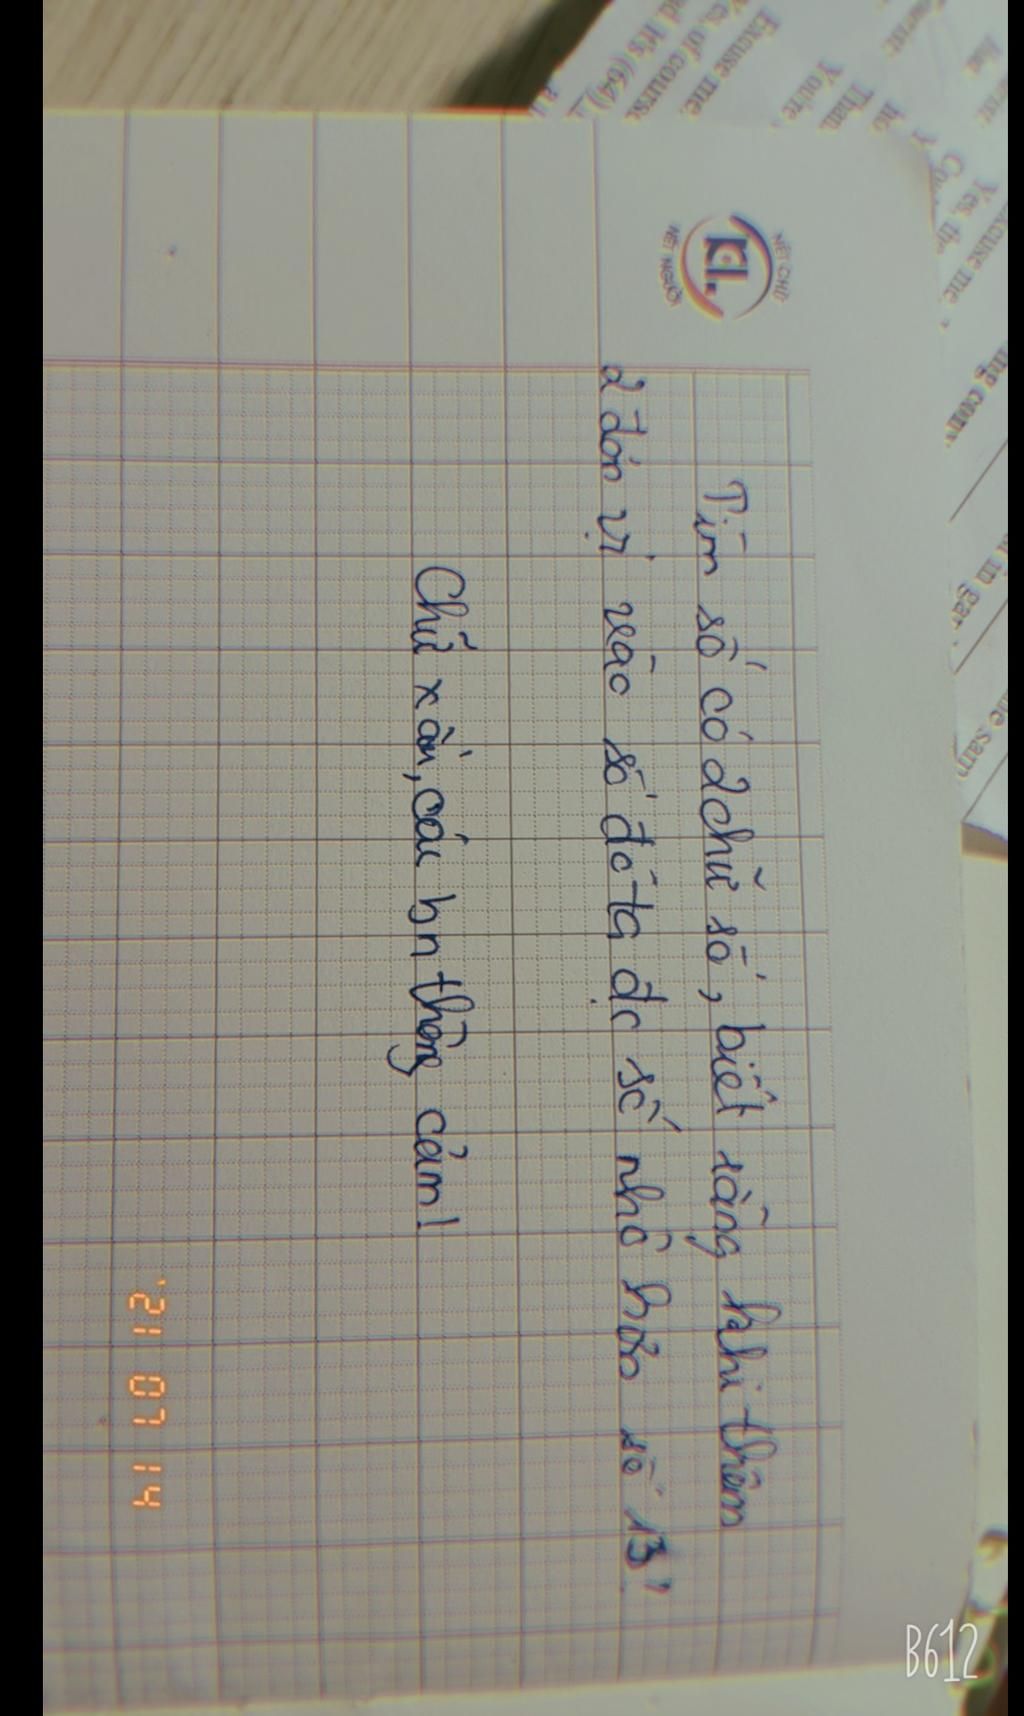 NÉT CHỮ
KL.
NẾT NGƯỜI
Tìm số có 2 chữ số, biết rằng khi thêm
2 đơn vị vào số đó ta đc số nhỏ hơn số 13?
Chữ xấu, các bn thông cảm!
Excuse me
Yes, of course
ed it's (64)
Excuse me,
You're
Than
Yes, the
Excuse me
ng conv
in gar
he sam
'21 07 14
B612